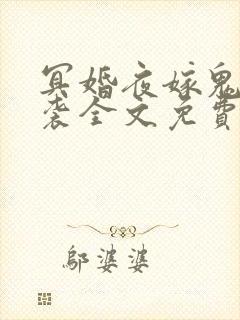 冥婚夜嫁鬼
袭全文免費
鄔婆婆